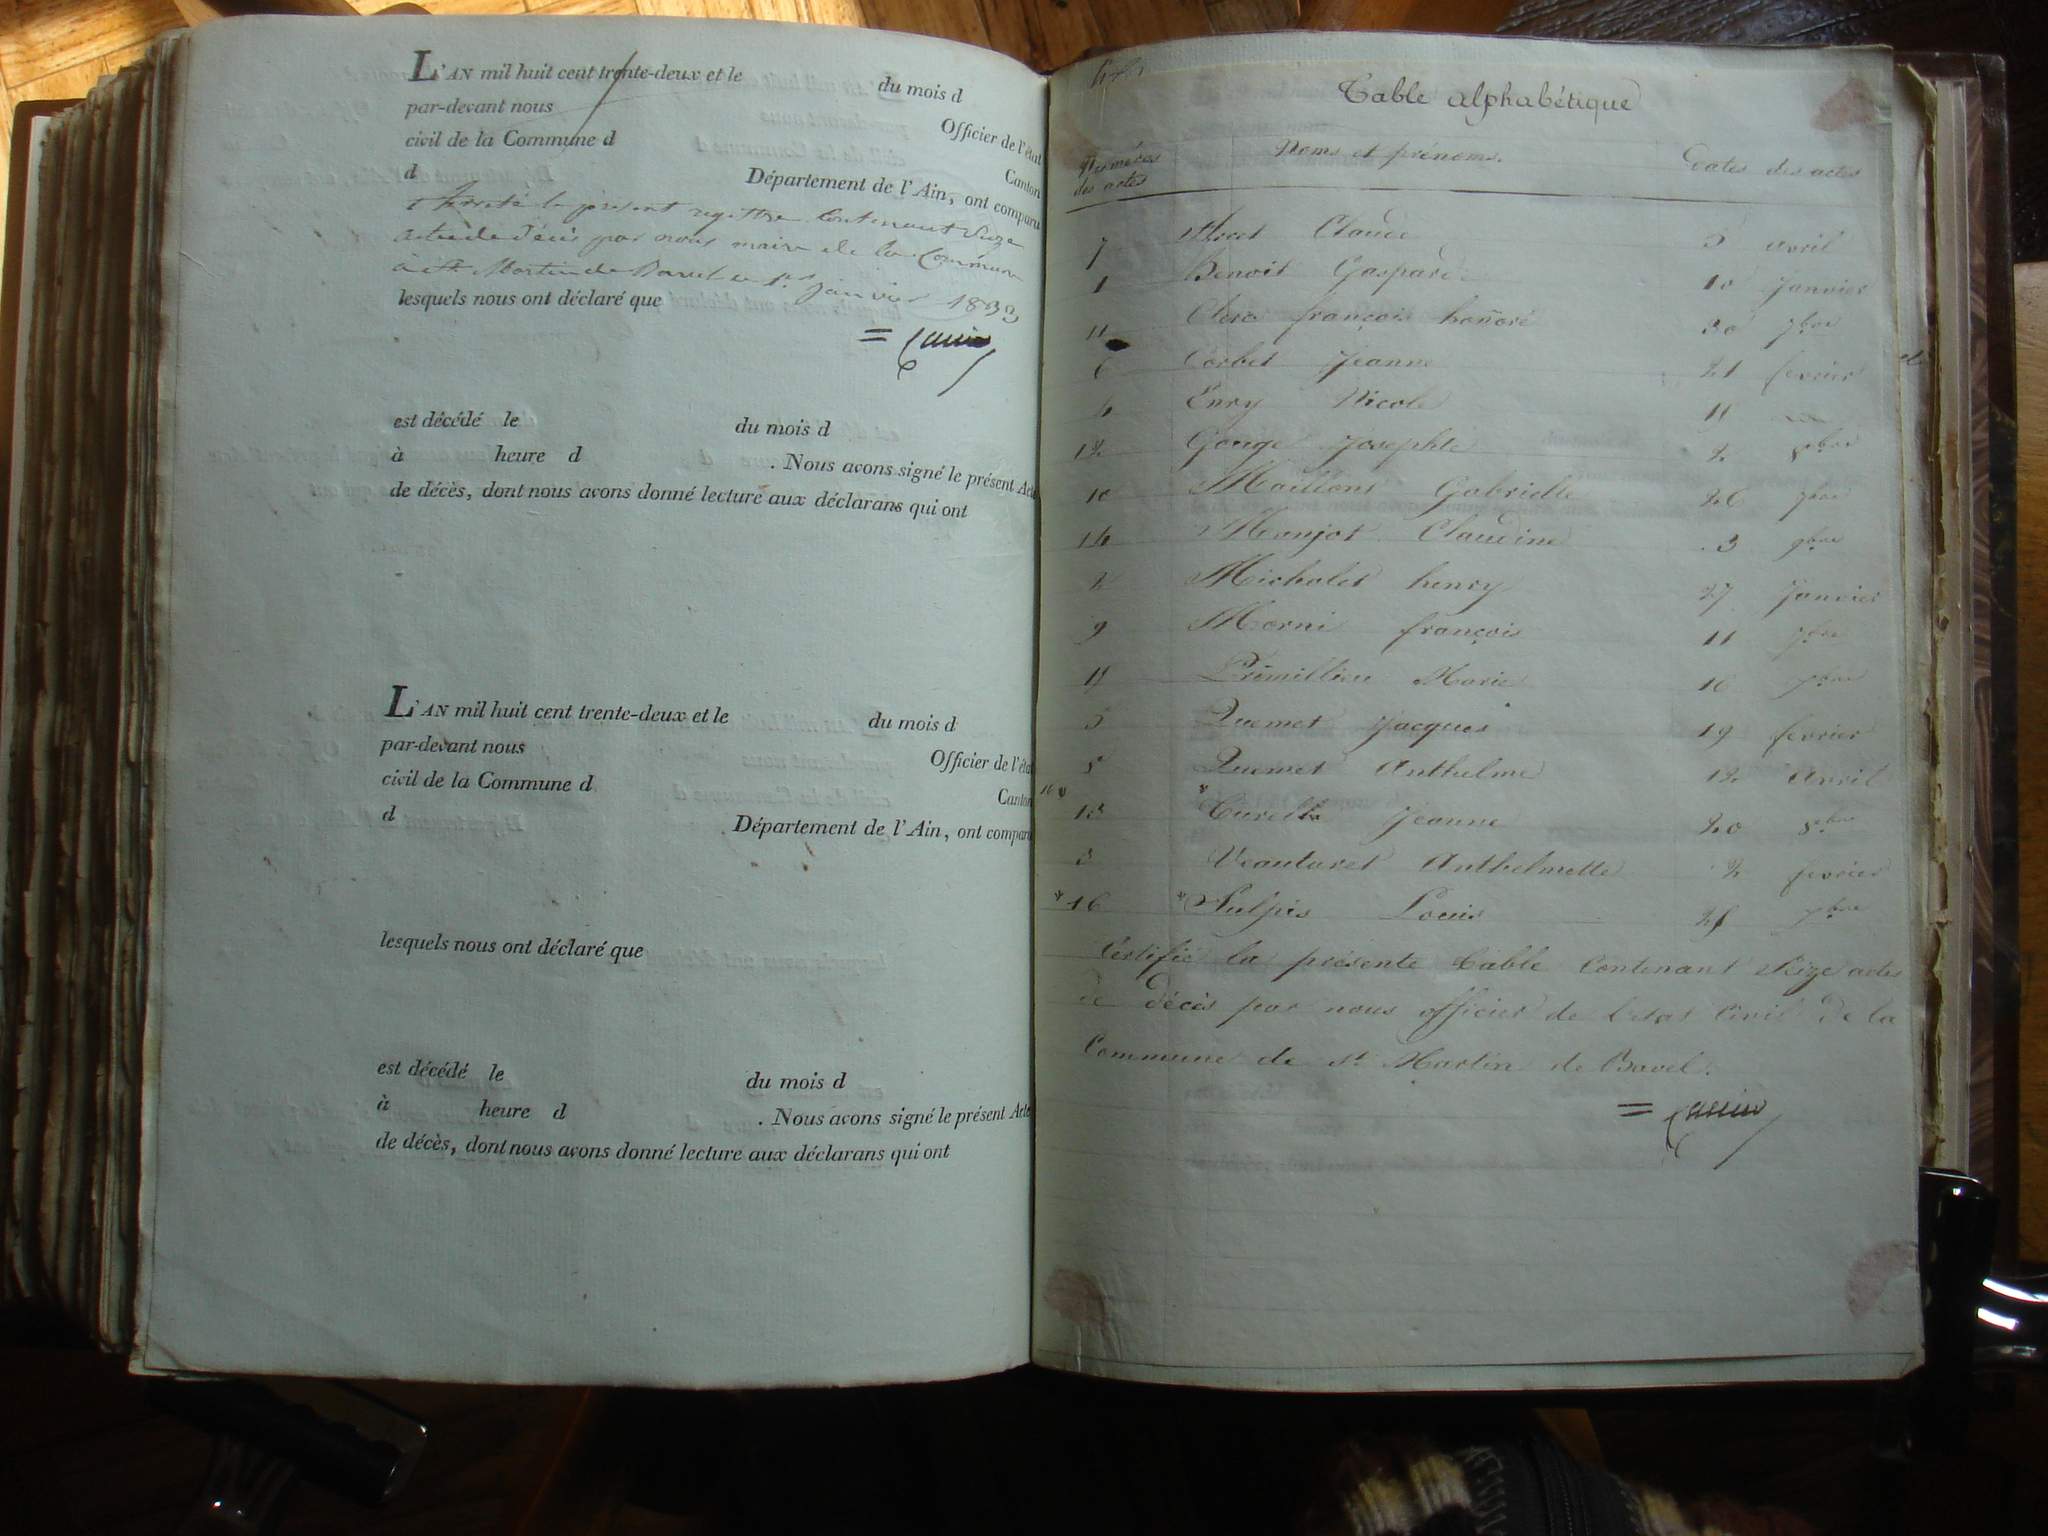 L'AN mil huit cent trente-deux et le du mois d
par-devant nous Officier de l'état
civil de la Commune d Canton
d Département de l'Ain, ont comparu
Arrêté le présent registre Contenant Seize
actes de décès par nous maire de la Commune
de St Martin de Bavel le 1er Janvier 1833
lesquels nous ont déclaré que
est décédé le du mois d
à heure d . Nous avons signé le présent Acte
de décès, dont nous avons donné lecture aux déclarans qui ont
L'AN mil huit cent trente-deux et le du mois d
par-devant nous Officier de l'état
civil de la Commune d Canton
d Département de l'Ain, ont comparu
lesquels nous ont déclaré que
est décédé le du mois d
à heure d . Nous avons signé le présent Acte
de décès, dont nous avons donné lecture aux déclarans qui ont
Table alphabétique
Numéros des actes Noms et prénoms. Dates des actes
7 Claude 5 avril
1 Benoit Gaspard 10 Janvier
11 Clerc françois honoré 30 7bre
6 Corbet Jeanne 21 fevrier
4 Enry Nicole 11
12 Gouge Josephte 2 8bre
10 Maillons Gabrielle 26 7bre
14 Monjot Claudine 3 9bre
2 Michalet henry 27 Janvier
9 Morni françois 11 7bre
Primillieu Marie 16
5 Quemet Jacques 19 fevrier
8 Quemet Anthelme 12 avril
13 Curell Jeanne 20 8bre
3 Vautaret Anthelmette 2 fevrier
16 Sulpis Louis 28
Certifié la présente table Contenant Seize actes
de décès par nous officier de l'etat Civil de la
Commune de St Martin de Bavel.